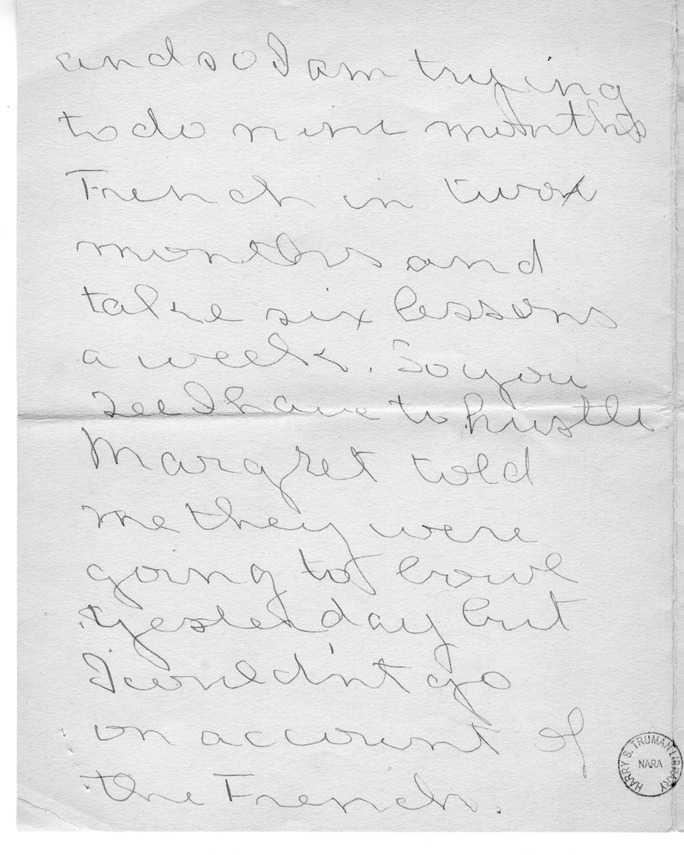 and so I am trying
to do nine months
French in two
months and
take six lessons
a week. So you
see I have to hustle
Margret told
me they were
going to bowl
yesterday but
I couldn't go
on account of
the French.
HARRY S. TRUMAN LIBRARY
NARA